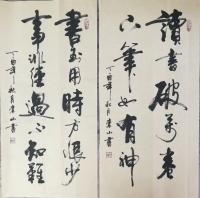 讀書破萬卷
下筆如有神
丁酉年秋月山書
書到用時方恨少
事非經過不知難
丁酉年秋月山書